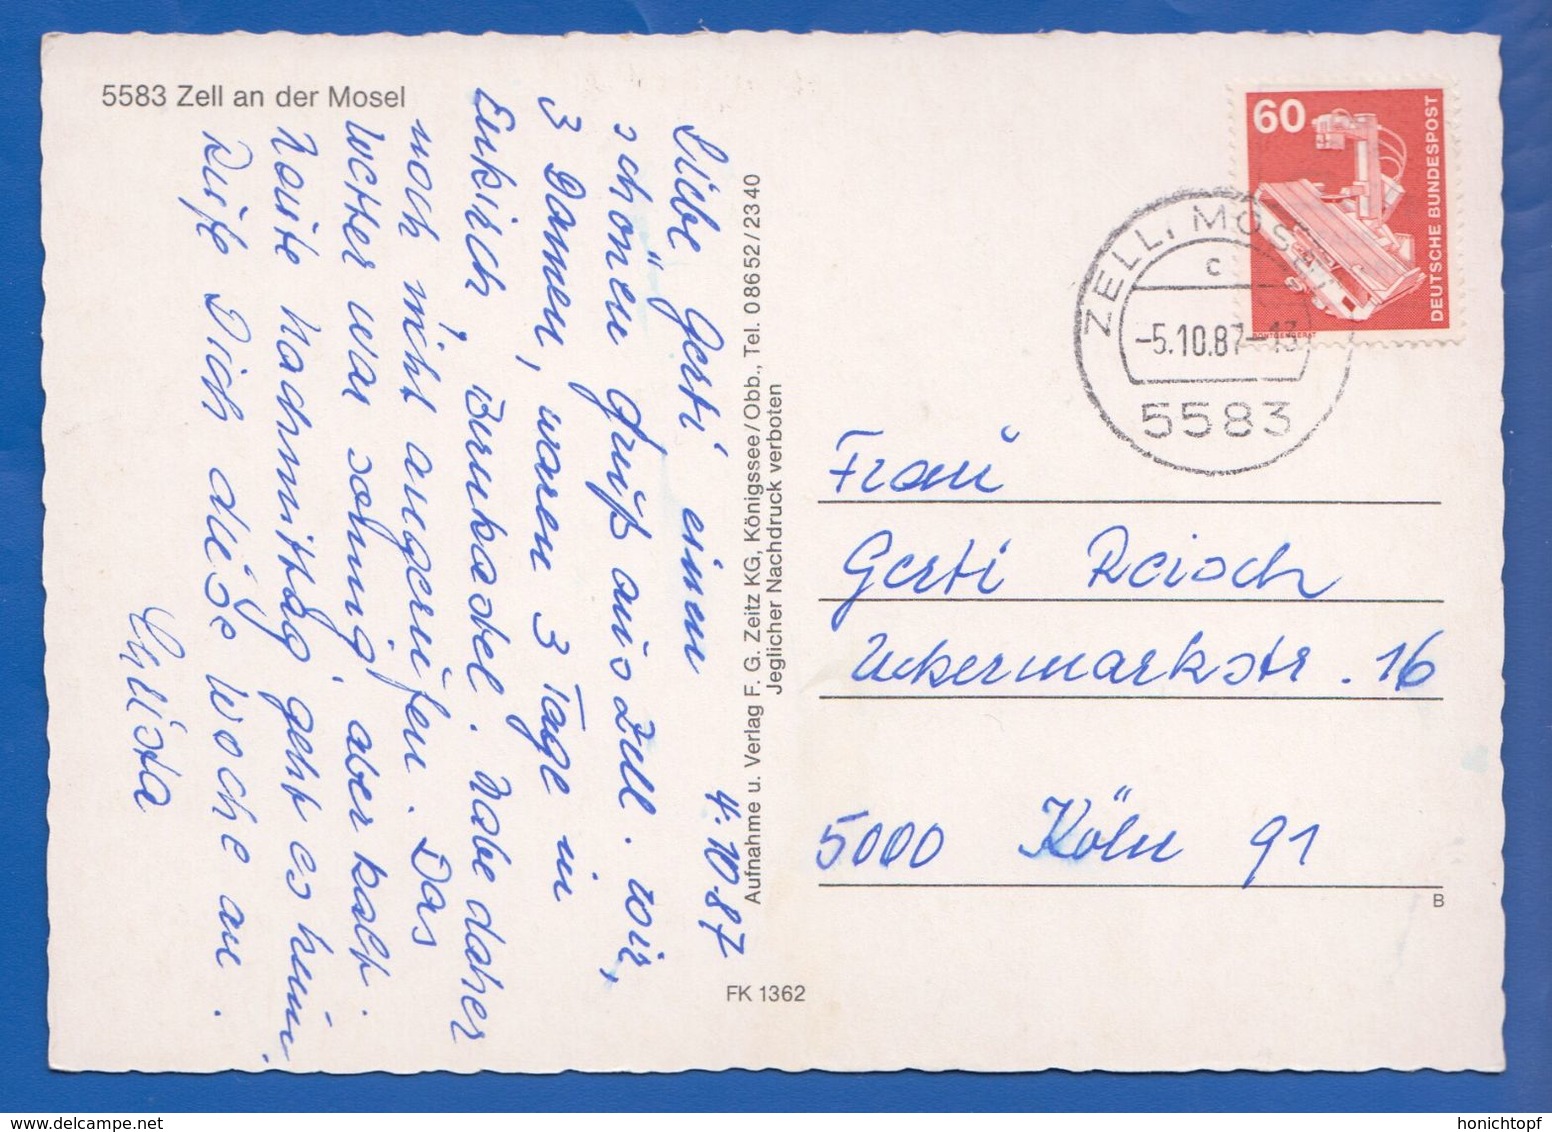 5583 Zell an der Mosel
4.10 87
Liebe Gerti einen
schönen Gruß aus Zell. Wir,
3 Damen, waren 3 Tage in
Enkirch, Bernkastel. Habe daher
noch nicht angerufen. Das
Wetter war sonnig, aber kalt.
Heute Nachmittag geht es heim.
Rufe Dich diese Woche an.
Christa
Aufnahme u. Verlag F. G. Zeitz KG, Königssee/Obb., Tel. 0 86 52 / 23 40
Jeglicher Nachdruck verboten
FK 1362
60
DEUTSCHE BUNDESPOST
RÖNTGENGERÄT
ZELL, MOSEL
c
-5.10.87-13
5583
Frau
Gerti Reisch
Uckermarkstr. 16
5000 Köln 91
B
honichtopf